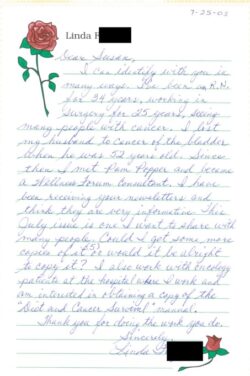 7-25-03
Linda F
Dear Susan,
I can identify with you in
many ways. I've been an R.N.
for 34 years, working in
Surgery for 25 years, seeing
many people with cancer. I lost
my husband to cancer of the bladder
when he was 52 years old. Since
then I met Pam Popper and became
a Wellness Forum Consultant. I have
been receiving your newsletters and
think they are very informative. This
July issue is one I want to share with
many people. Could I get some more
copies of it (25) or would it be alright
to copy it? I also work with oncology
patients at the hospital where I work and
am interested in obtaining a copy of the
"Diet and Cancer Survival" manual.
Thank you for doing the work you do.
Sincerely,
Linda